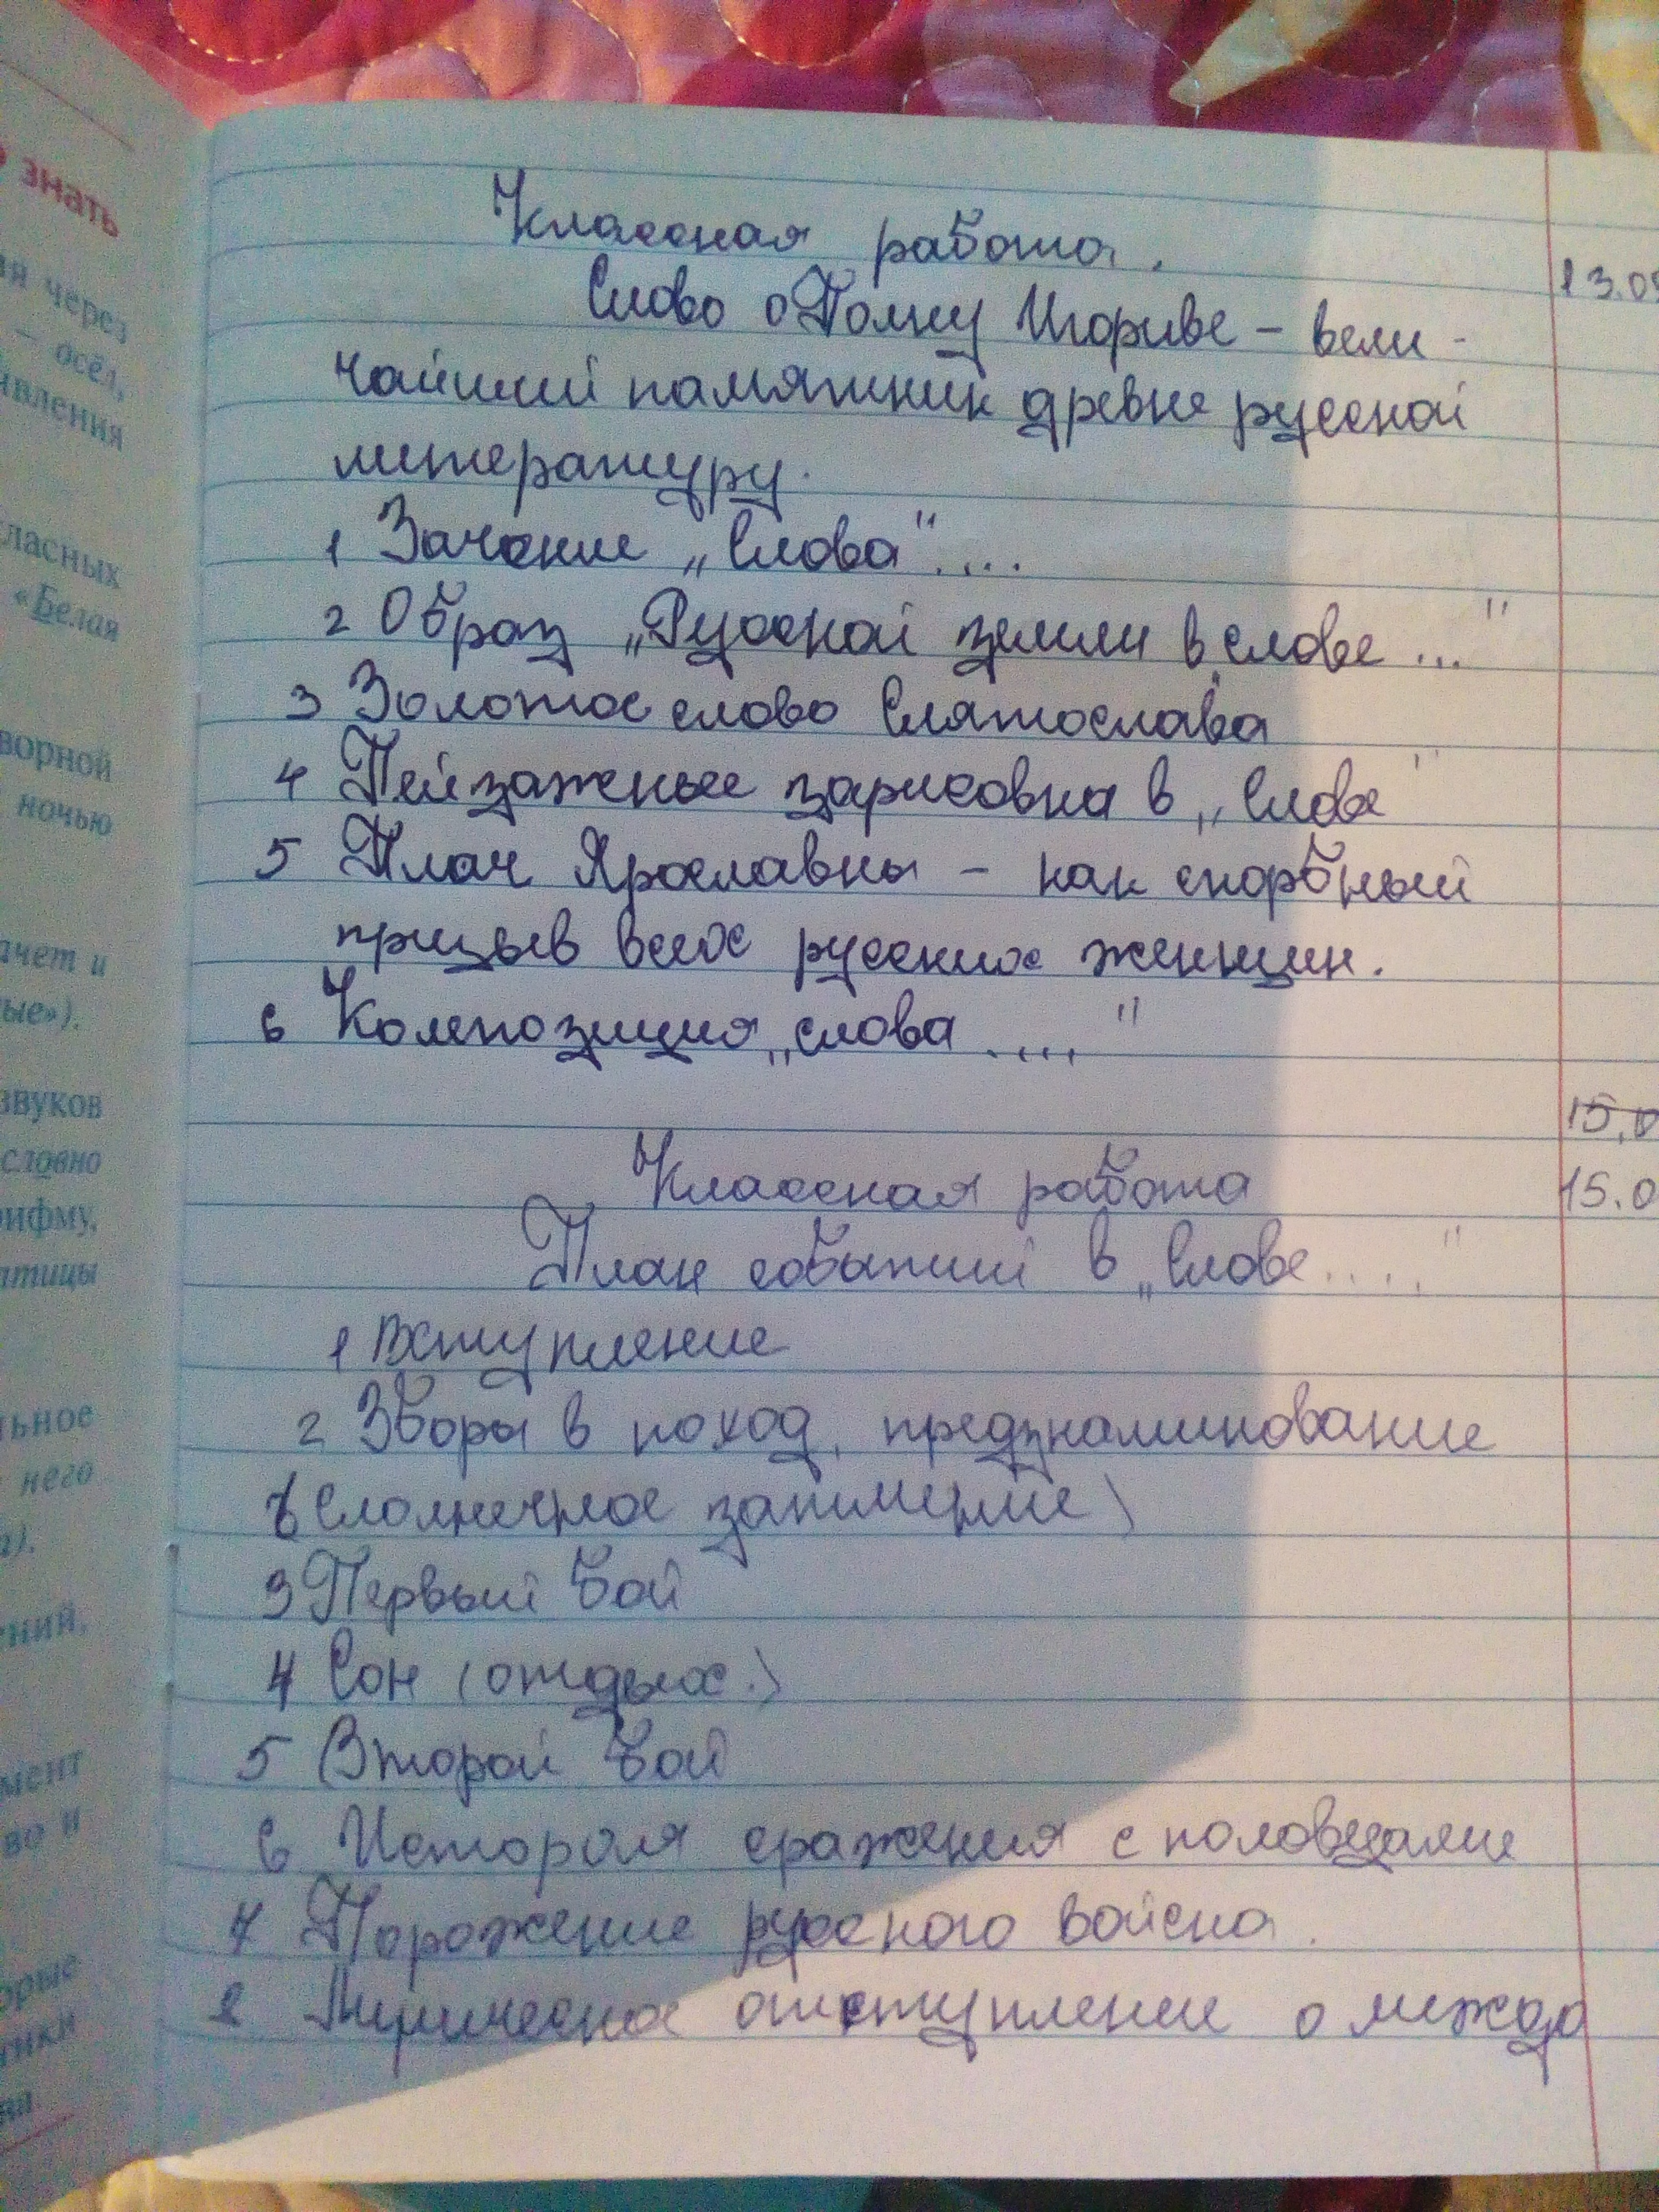 знать
ия через
– осёл,
явления
гласных
«Белая
ворной
ночью
ачет и
ые»).
звуков
словно
рифму,
птицы
льное
него
а).
ений,
мент
во и
орые
Классная работа.
13.09
Слово о Полку Игориве – вели-
чайший памятник древне русской
литературу.
1 Зачение „Слова"....
2 Образ „Русской земли в „слове ..."
3 Золотое слово Слятослава
4 Пейзажные зарисовка в „Слове"
5 Плач Ярославны – как скорбный
призыв всех русских женщин.
6 Композиция „слова ...."
15.0
Классная работа
15.0
План событий в „Слове ...."
1 Вступление
2 Зборы в поход, предзнаминование
(Солнечное затмение)
3 Первый бой
4 Сон (отдых.)
5 Второй бой
6 История сражения с половцами
7 Поражение русского войска.
8 Лирическое отступление о междо